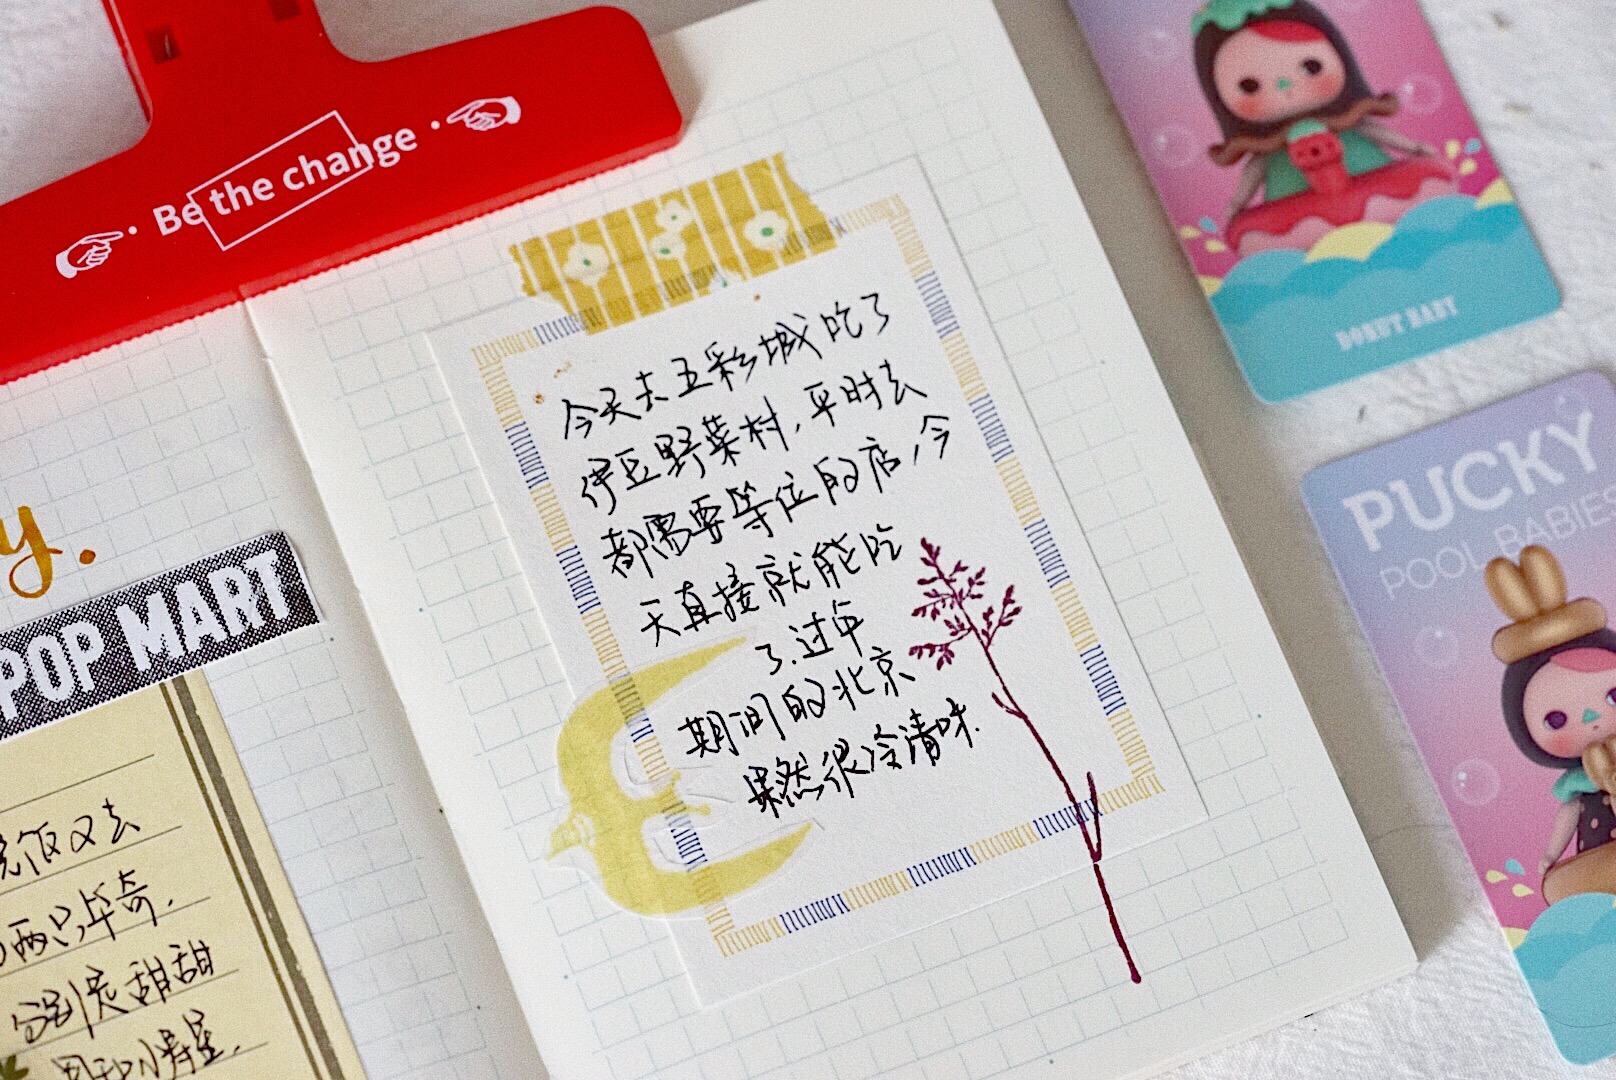 Be the change
y.
POP MART
今天去五彩城吃了
伊豆野菜村,平时去
都需要等位的店,今
天直接就能吃
了.过年
期间的北京
果然很冷清呀.
饭又去
两只毕奇.
分别是甜甜
DONUT BABY
PUCKY
POOL BABIES